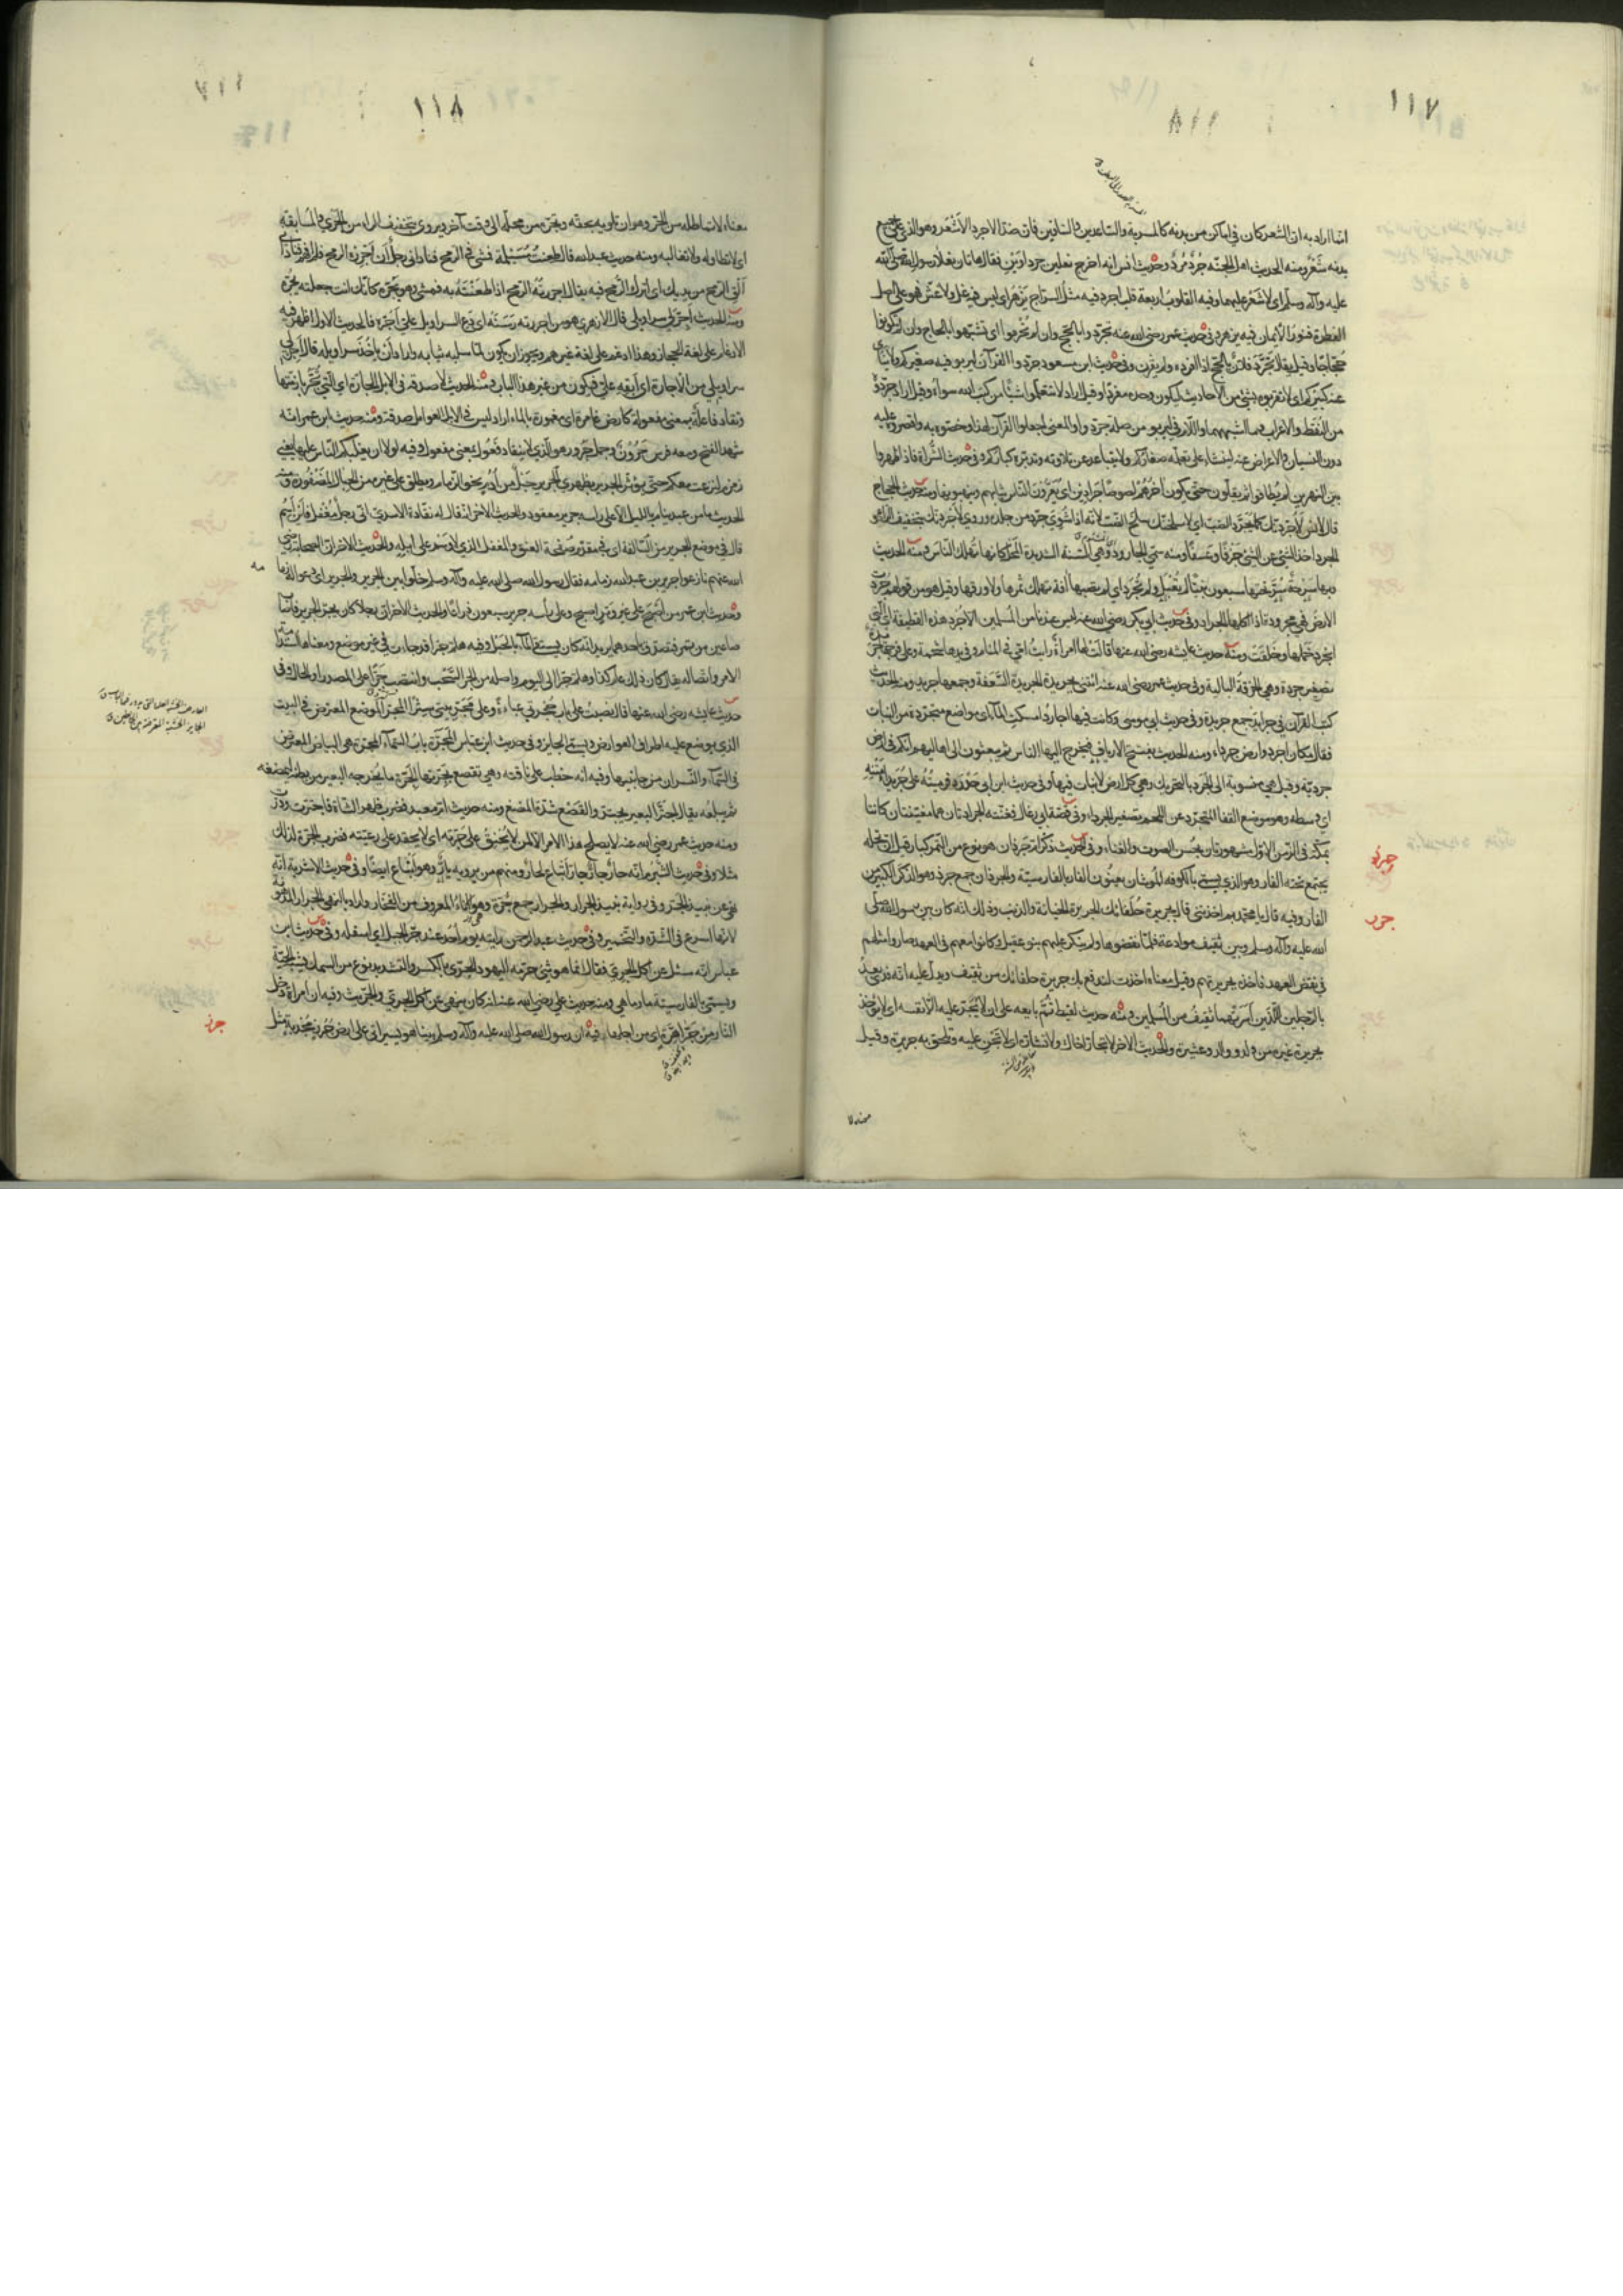 ١١٧
انما اراد به ان الشعر كان في اماكن من بدنه كالمسربة والساعدين والساقين فان ضد الاجرد الاشعر وهو الذي على جميع
بدنه شعر ومنه الحديث اهل الجنة جرد مرد وحديث انس انه اخرج نعلين جرداوين فقال هاتان نعلا رسول الله صلى الله
عليه وآله وسلم اى لا شعر عليهما وفيه القلوب اربعة قلب اجرد فيه مثل السراج يزهر اى ليس فيه غل ولا غش فهو على اصل
الفطرة فنور الايمان فيه يزهر وفي حديث عمر رضي الله عنه تجردوا بالحج وان لم تحرموا اى تشبهوا بالحاج وان لم تكونوا
حجاجا وقيل يقال تجرد فلان بالحج اذا افرده ولم يقرن وفي حديث ابن مسعود جردوا القرآن ليربو فيه صغيركم ولا ينأى
عنه كبيركم اى لا تقرنوا به شيئا من الاحاديث ليكون وحده مفردا وقيل اراد لا تتعلموا شيئا من كتب الله سواه وقيل اراد جردوه
من النقط والاعراب وما اشبههما واللام في ليربو من صلة جردوا والمعنى اجعلوا القرآن لهذا وخصوه به واقصروه عليه
دون النسيان والاعراض عنه لينشأ على تعلمه صغاركم ولا يتباعد عن تلاوته وتدبره كباركم وفي حديث الشراة فاذا ظهروا
بين النهرين لم يطاقوا ثم يقلون حتى يكون آخرهم لصوصا جرادين اى يعرون الناس ثيابهم وينهبونها ومنه حديث الحجاج
قال لانس لاجردنك كما يجرد الضب اى لاسلخنك سلخ الضب لانه اذا شوي جرد من جلده وروي لاجردنك بتخفيف الراء و
الجرد اخذ الشئ عن الشئ جرفا وعسفا ومنه سمي الجارود وهي السنة الشديدة المحل كانها تهلك الناس ومنه الحديث
وبها سرحة سر تحتها سبعون نبيا لم تقبل ولم تجرد اى لم تصبها آفة تهلك ثمرها ولا ورقها وقيل هو من قولهم جردت
الارض فهي مجرودة اذا اكلها الجراد وفي حديث ابي بكر رضي الله عنه ليس عندنا من مال المسلمين الا جرد هذه القطيفة اى التي
انجرد خملها وخلقت ومنه حديث عايشه رضي الله عنها قالت لها امرأة رأيت امي في المنام وفي يدها شحمة وعلى فرجها جريدة
تصغير جردة وهي الخرقة البالية وفي حديث عمر رضي الله عنه ائتني بجريدة الجريدة السعفة وجمعها جريد ومنه الحديث
كتب القرآن في جرايد جمع جريدة وفي حديث ابي موسى وكانت فيها اجارد امسكت الماء اى مواضع متجردة من النبات
فقال مكان اجرد وارض جرداء ومنه الحديث تفتح الارياف فيخرج اليها الناس ثم يبعثون الى اهاليهم انكم في ارض
جردية وقيل هي منسوبة الى الجرد بالتحريك وهي كل ارض لا نبات فيها وفي حديث ابن ابي حدرد فرميته على جريداء متنه
اى وسطه وهو موضع القفا المتجرد عن اللحم تصغير الجرداء وفي قصة ابي رغال فغنته الجرادتان هما مغنيتان كانتا
بمكة في الزمن الاول مشهورتان بحسن الصوت والغناء وفي الحديث ذكر ام جرذان هو نوع من التمر كبار قيل ان نخله
يجتمع تحته الفار وهو الذي يسمى بالكوفة الموشان يعنون الفار بالفارسية والجرذان جمع جرذ وهو الذكر الكبير من
الفار وفيه قال يا محمد بم اخذتني قال بجريرة حلفائك الجريرة الجناية والذنب وذلك انه كان بين رسول الله صلى
الله عليه وآله وسلم وبين ثقيف موادعة فلما نقضوها ولم ينكر عليهم بنو عقيل وكانوا معهم في العهد صاروا مثلهم
في نقض العهد فاخذه بجريرتهم وقيل معناه اخذت لتدفع بك جريرة حلفائك من ثقيف ويدل عليه انه فدي بعد
بالرجلين اللذين اسرتهما ثقيف من المسلمين ومنه حديث لقيط ثم بايعه على ان لا يجر عليه الا نفسه اى لا يؤخذ
بجريرة غيره من ولد ووالد وعشيرة والحديث الاخر لا تجار اخاك ولا تشاره اى لا تجن عليه وتلحق به جريرة وقيل
جرذ
جرر
معناه لا
١١٨
معناه لا تماطله من الجر وهو ان تلويه بحقه وتجره من محله الى وقت آخر ويروى بتخفيف الراء من الجري والمسابقة
اى لا تطاوله ولا تغالبه ومنه حديث عبد الله قال طعنت مسيلمة فمشى في الرمح فناداني رجل ان اجرره الرمح فلم افهم فناداني
الق الرمح من يديك اى اترك الرمح فيه يقال اجررته الرمح اذا طعنته به فمشى وهو يجره كانك انت جعلته يجره
ومنه الحديث اجر لي سراويلي قال الازهري هو من اجررته رسنه اى دع السراويل علي اجره فالحديث الاول اظهر فيه
الادغام على لغة الحجاز وهذا ادغم على لغة غيرهم ويجوز ان يكون لما سلبه ثيابه واراد ان ياخذ سراويله قال اجر لي
سراويلي من الاجارة اى ابقه علي فيكون من غير هذا الباب ومنه الحديث لا صدقة في الابل الجارة اى التي تجر بازمتها
وتقاد فاعلة بمعنى مفعولة كارض غامرة اى مغمورة بالماء اراد ليس في الابل العوامل صدقة ومنه حديث ابن عمر انه
شهد الفتح ومعه فرس حرون وجمل جرور هو الذي لا ينقاد فعول بمعنى مفعول وفيه لولا ان يغلبكم الناس عليها يعني
زمزم لنزعت معكم حتى يؤثر الجرير بظهري الجرير حبل من ادم نحو الزمام ويطلق على غيره من الحبال المضفورة ومنه
الحديث ما من عبد ينام بالليل الا على راسه جرير معقود والحديث الاخر انه قال له نقادة الاسدي اني رجل مغفل فاين اسم
قال في موضع الجرير من السالفة اى في مقدم صفحة العنق والمغفل الذي لا وسم على ابله والحديث الاخر ان الصحابة رضي
الله عنهم نازعوا جرير بن عبد الله زمامه فقال رسول الله صلى الله عليه وآله وسلم خلوا بين جرير والجرير اى دعوا له زمامه
وحديث ابن عمر من اصبح على غير وتر اصبح وعلى رأسه جرير سبعون ذراعا والحديث الاخر ان رجلا كان يجر الجرير فاصاب
صاعين من تمر فتصدق باحدهما يريد انه كان يستقي الماء بالحبل وفيه هلم جرا قد جاءت في غير موضع ومعناها استدامة
الامر واتصاله يقال كان ذلك عام كذا وهلم جرا الى اليوم واصله من الجر السحب وانتصب جرا على المصدر او الحال وفي
حديث عايشه رضي الله عنها قال نصبت على باب حجرتي عباءة وعلى مجر بيتي سترا المجر الموضع المعترض في البيت
الذي يوضع عليه اطراف العوارض ويسمى الجايز وفي حديث ابن عباس المجرة باب السماء المجرة هي البياض المعترض
في السماء والنسران من جانبيها وفيه انه خطب على ناقته وهي تقصع بجرتها الجرة ما يخرجه البعير من بطنه ليمضغه
ثم يبلعه يقال اجتر البعير يجتر والقصع شدة المضغ ومنه حديث ام معبد فضرب ظهر الشاة فاجترت ودرت
ومنه حديث عمر رضي الله عنه لا يصلح هذا الامر الا لمن لا يحنق على جرته اى لا يحقد على رعيته فضرب الجرة لذلك
مثلا وفي حديث الشبرم انه حار جار جار اتباع لحار ومنهم من يرويه يار وهو اتباع ايضا وفي حديث الاشربة انه
نهى عن نبيذ الجر وفي رواية نبيذ الجرار والجرار جمع جرة وهو الاناء المعروف من الفخار واراد بالنهي الجرار المدهونة
لانها اسرع في الشدة والتخمير وفي حديث عبد الرحمن رايته يوم احد عند جر الجبل اى اسفله وفي حديث ابن
عباس انه سئل عن اكل الجري فقال انما هو شئ حرمه اليهود الجري بالكسر والتشديد نوع من السمك يشبه الحية
ويسمى بالفارسية مارماهي ومنه حديث علي رضي الله عنه انه كان ينهى عن اكل الجري والجريث وفيه ان امرأة دخلت
النار من جرا هرة اى من اجلها وفيه ان رسول الله صلى الله عليه وآله وسلم بينا هو يسير اتى على ارض جرز مجدبة مثل
جرز